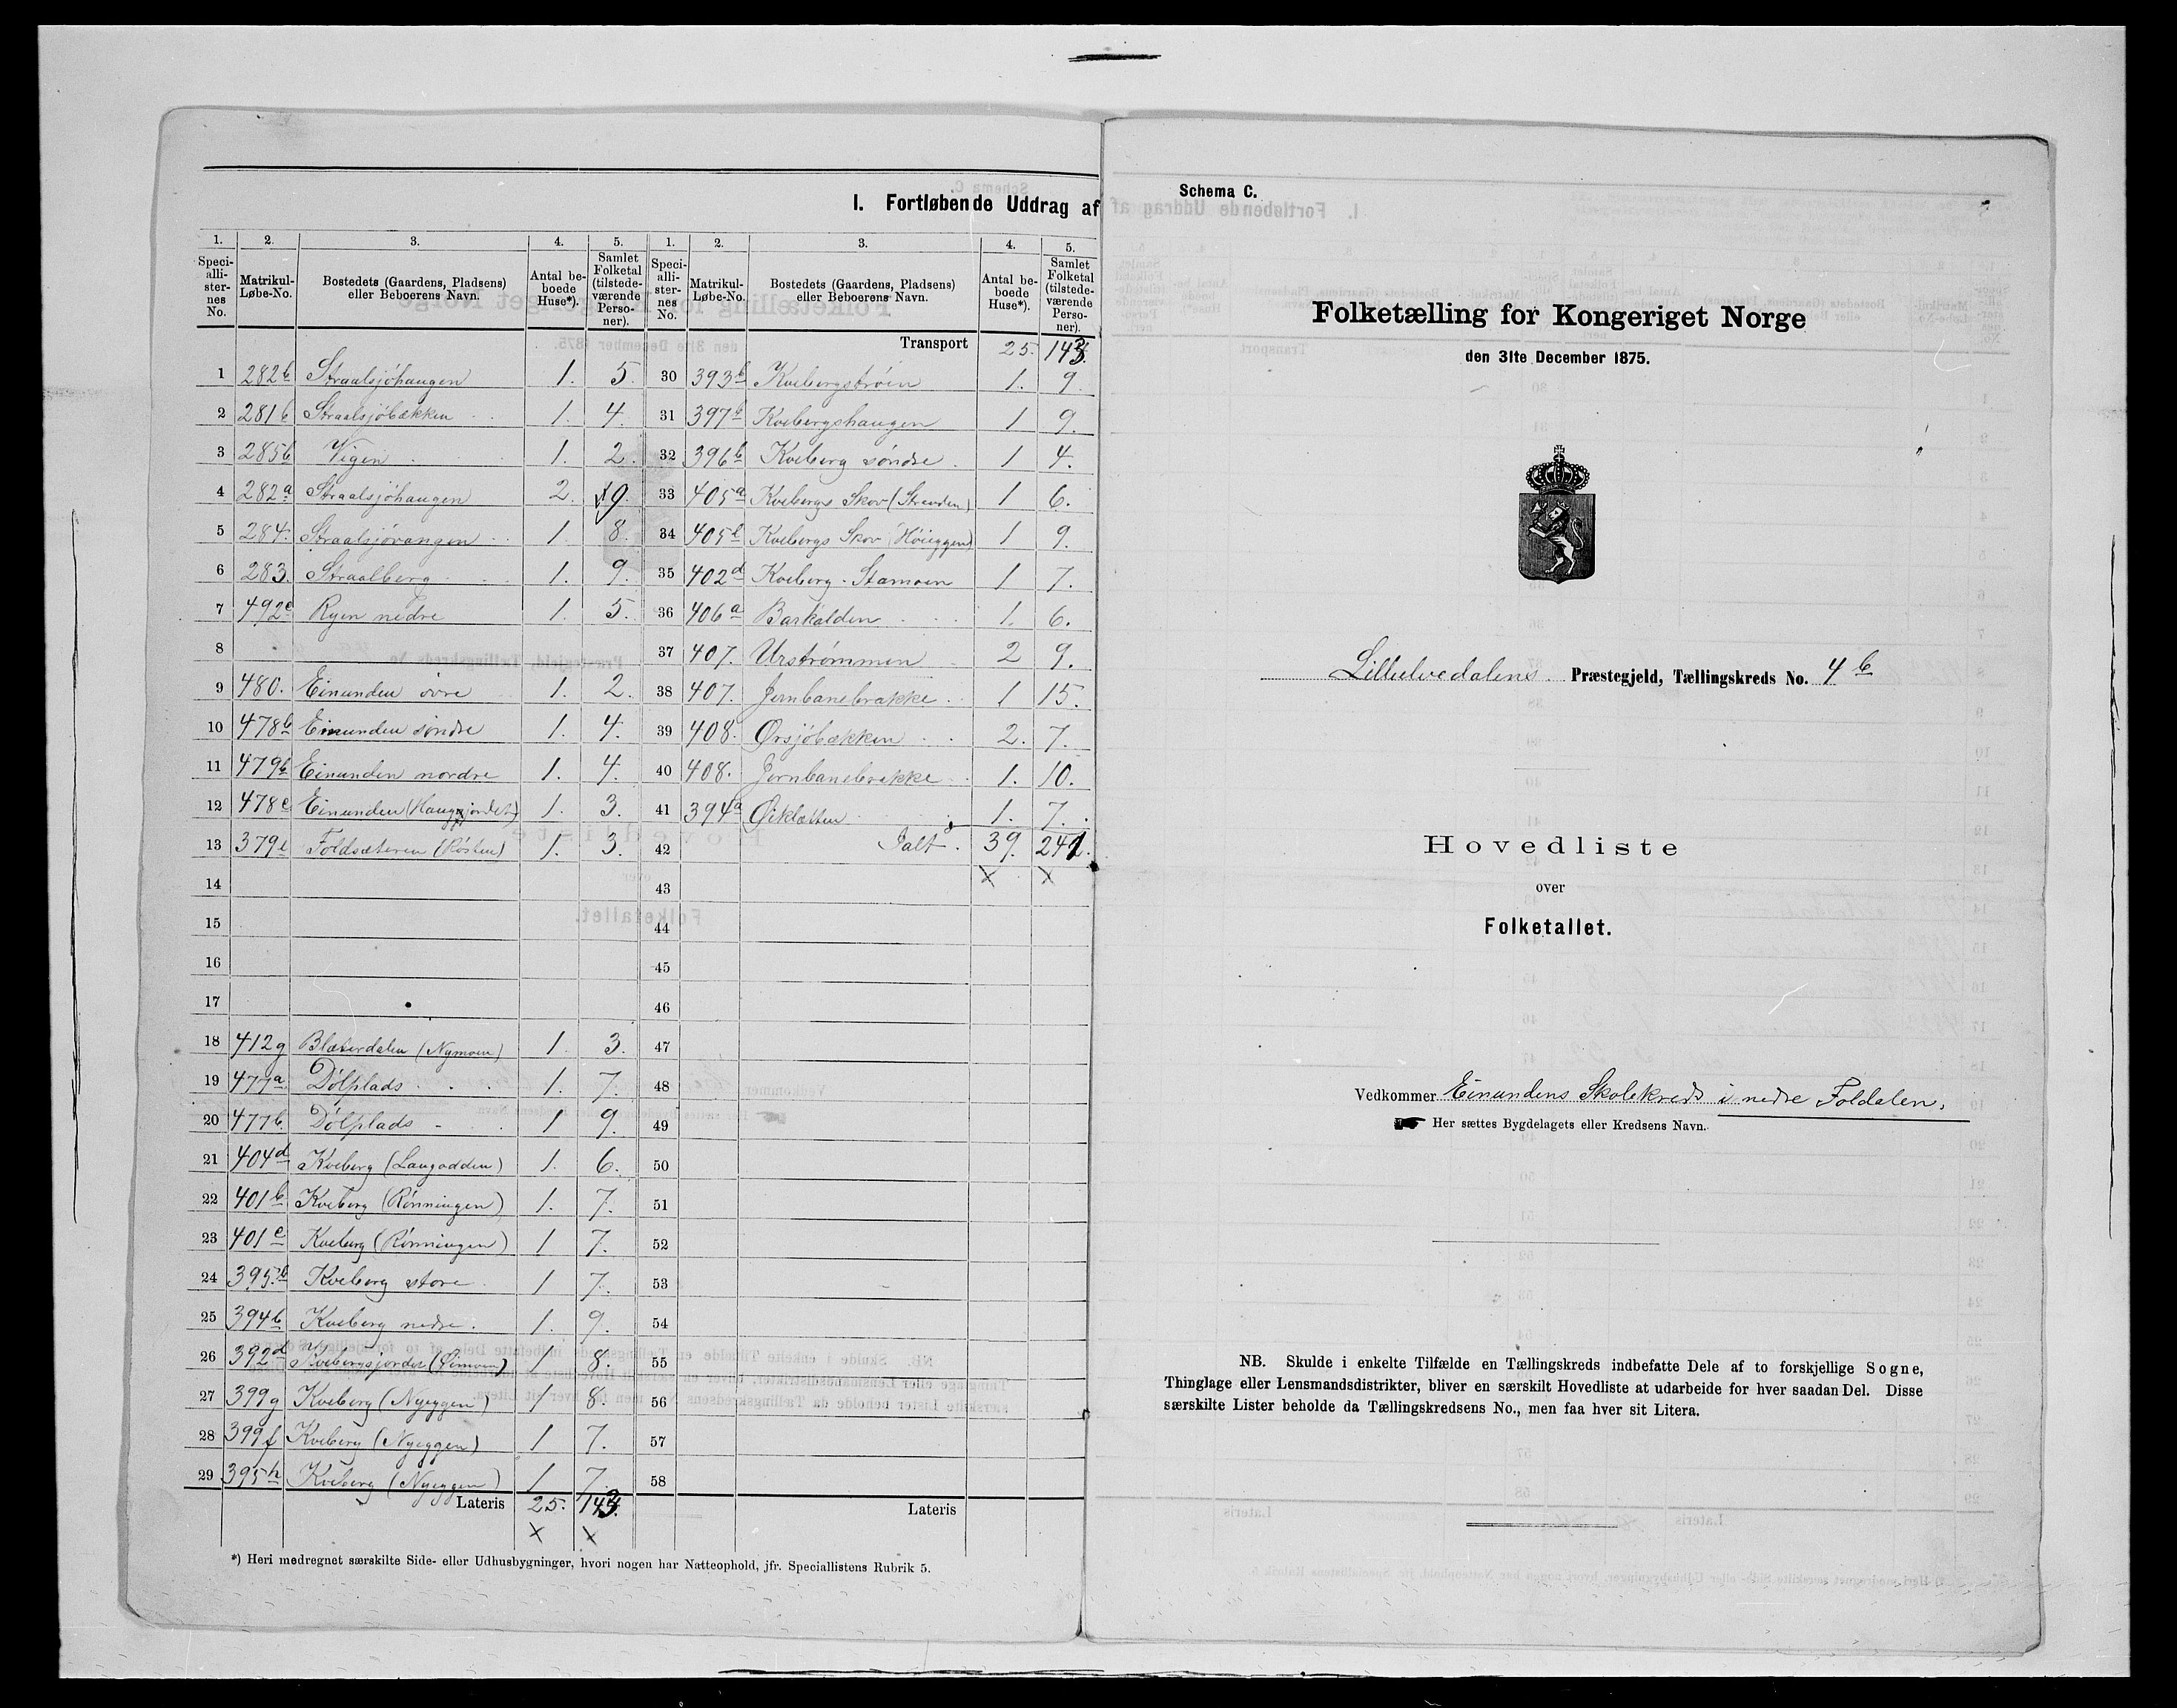 I. Fortløbende Uddrag af
1. 2. 3. 4. 5. 1. 2. 3. 4. 5.
Speciallisternes No. Matrikul-Løbe-No. Bostedets (Gaardens, Pladsens) eller Beboerens Navn. Antal beboede Huse*). Samlet Folketal (tilstedeværende Personer). Speciallisternes No. Matrikul-Løbe-No. Bostedets (Gaardens, Pladsens) eller Beboerens Navn. Antal beboede Huse*). Samlet Folketal (tilstedeværende Personer).
Transport 25. 143.
1 282b Straalsjöhaugen 1. 5. 30 393b Kvebergströen 1. 9.
2 281b Straalsjöbækken 1. 4. 31 397b Kvebergshaugen 1 9.
3 285b Vigen 1. 2. 32 396b Kveberg söndre 1 4.
4 282a Straalsjöhaugen 2. 9. 33 405a Kvebergs Skov (Stranden) 1 6.
5 284. Straalsjövangen 1. 8. 34 405b Kvebergs Skov (Höieggen) 1 9.
6 283. Straalberg 1. 9. 35 402d Kveberg-Stamoen 1 7.
7 492c Ryen nedre 1. 5. 36 406a Barkalden 1. 6.
8 37 407. Urströmmen 2 9.
9 480. Einunden övre 1. 2. 38 407. Jernbanebrakke 1 15.
10 478b Einunden söndre 1. 4. 39 408. Örsjöbækken 2. 7.
11 479b Einunden nordre 1. 4. 40 408. Jernbanebrakke 1. 10.
12 478c Einunden (Haugjordet) 1. 3. 41 394a Öiklætten 1. 7.
13 379e Foldsæteren (Rösten) 1. 3. 42 Ialt. 39. 241.
14 43
15 44
16 45
17 46
18 412g Blæsterdalen (Nymoen) 1. 3. 47
19 477a Dölplads 1. 7. 48
20 477b. Dölplads 1 9. 49
21 404d Kveberg (Langodden) 1. 6. 50
22 401b Kveberg (Rönningen) 1. 7. 51
23 401c Kveberg (Rönningen) 1 7. 52
24 395.b Kveberg store 1 7. 53
25 394b Kveberg nedre. 1. 9. 54
26 392d Kvebergsjordet (Öimoen) 1 8. 55
27 399g Kveberg (Nyeggen) 1 8. 56
28 399f Kveberg (Nyeggen) 1 7. 57
29 395h Kveberg (Nyeggen) 1 7. 58
Lateris 25. 143. Lateris
*) Heri medregnet særskilte Side- eller Udhusbygninger, hvori nogen har Natteophold, jfr. Speciallistens Rubrik 5.
Schema C.
Folketælling for Kongeriget Norge
den 31te December 1875.
Lilleelvedalens Præstegjeld, Tællingskreds No. 4b
Hovedliste
over
Folketallet.
Vedkommer Einundens Skolekreds i nedre Foldalen.
Her sættes Bygdelagets eller Kredsens Navn.
NB. Skulde i enkelte Tilfælde en Tællingskreds indbefatte Dele af to forskjellige Sogne,
Thinglage eller Lensmandsdistrikter, bliver en særskilt Hovedliste at udarbeide for hver saadan Del. Disse
særskilte Lister beholde da Tællingskredsens No., men faa hver sit Litera.